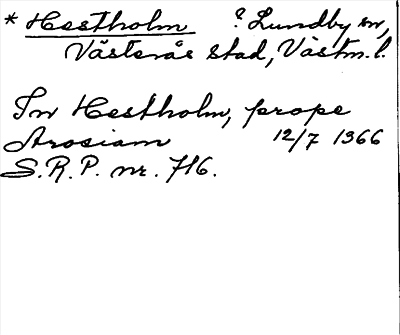 * Hestholm ? Lundby sn,
Västerås stad, Västm. l.
In Hestholm, prope
Arosiam 12/7 1366
S.R.P. nr. 716.